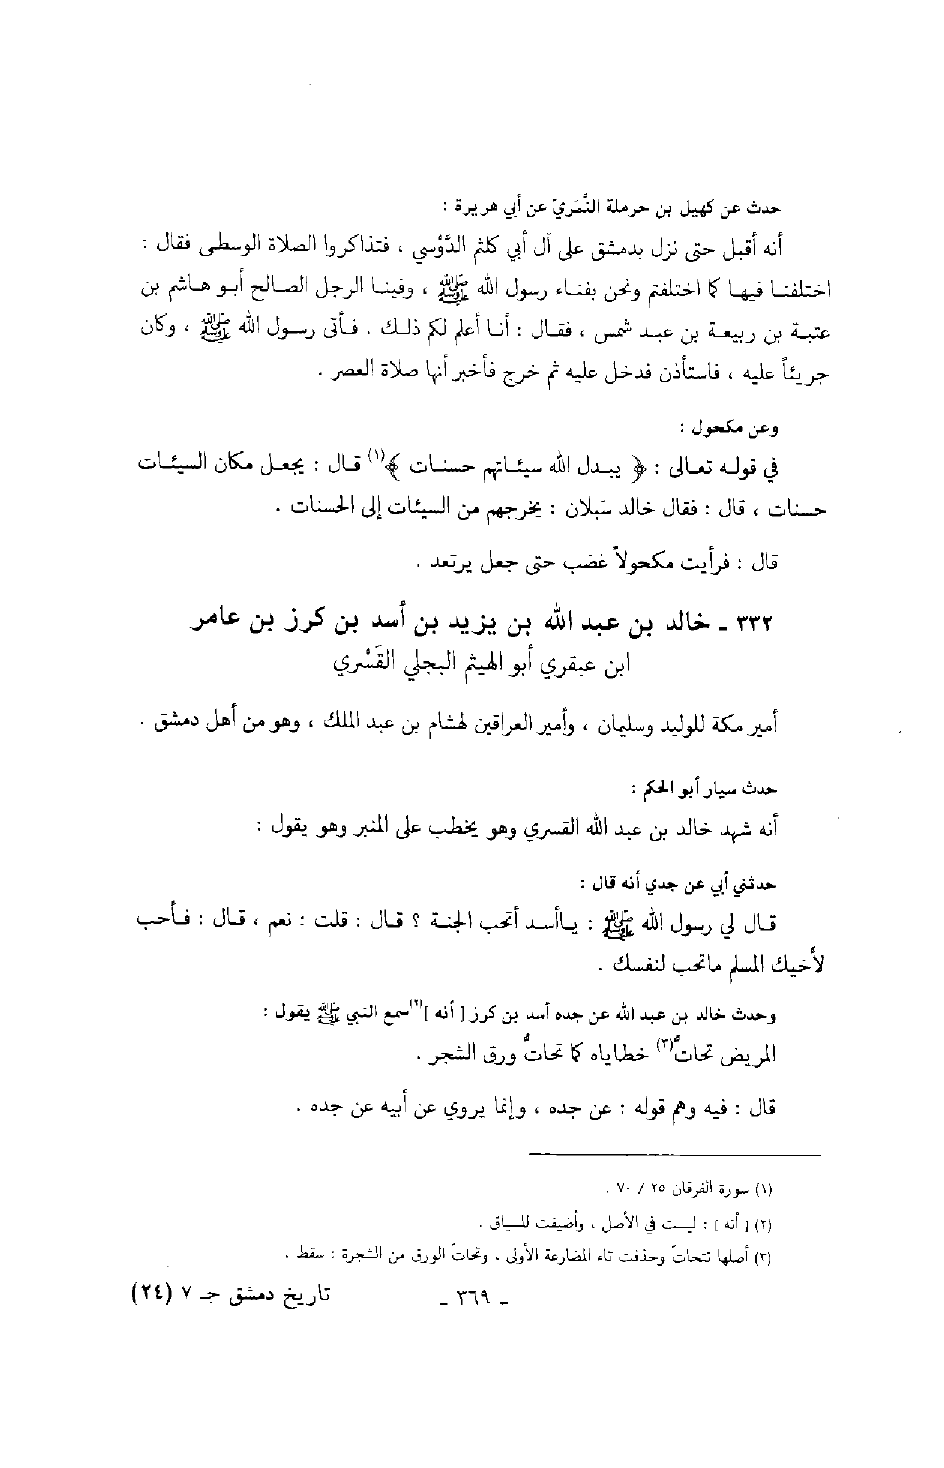 حدث عن كهيل بن حرملة النَّمَريّ عن أبي هريرة :
أنه أقبل حتى نزل بدمشق على آل أبي كلثم الدَّوْسي ، فتذاكروا الصلاة الوسطى فقال :
اختلفنا فيها كما اختلفتم ونحن بفناء رسول الله ﷺ ، وفينا الرجل الصالح أبو هاشم بن
عتبة بن ربيعة بن عبد شمس ، فقال : أنا أعلم لكم ذلك . فأتى رسول الله ﷺ ، وكان
جريئاً عليه ، فاستأذن فدخل عليه ثم خرج فأخبر أنها صلاة العصر .
وعن مكحول :
في قوله تعالى : ﴿ يبدل الله سيئاتهم حسنات ﴾(١) قال : يجعل مكان السيئات
حسنات ، قال : فقال خالد سَبلان : يخرجهم من السيئات إلى الحسنات .
قال : فرأيت مكحولاً غضب حتى جعل يرتعد .
٣٣٢ ـ خالد بن عبد الله بن يزيد بن أسد بن كرز بن عامر
ابن عبقري أبو الهيثم البجلي القَسْري
أمير مكة للوليد وسليمان ، وأمير العراقين لهشام بن عبد الملك ، وهو من أهل دمشق .
حدث سيار أبو الحكم :
أنه شهد خالد بن عبد الله القسري وهو يخطب على المنبر وهو يقول :
حدثني أبي عن جدي أنه قال :
قال لي رسول الله ﷺ : ياأسد أتحب الجنة ؟ قال : قلت : نعم ، قال : فأحب
لأخيك المسلم ماتحب لنفسك .
وحدث خالد بن عبد الله عن جده أسد بن كرز [ أنه ](٢) سمع النبي ﷺ يقول :
المريض تحاتُّ(٣) خطاياه كما تحاتُّ ورق الشجر .
قال : فيه وهم قوله : عن جده ، وإنما يروي عن أبيه عن جده .
(١) سورة الفرقان ٢٥ / ٧٠ .
(٢) [ أنه ] : ليست في الأصل ، وأضيفت للسياق .
(٣) أصلها تتحاتّ وحذفت تاء المضارعة الأولى ، وتحاتّ الورق من الشجرة : سقط .
ـ ٣٦٩ ـ تاريخ دمشق جـ ٧ (٢٤)